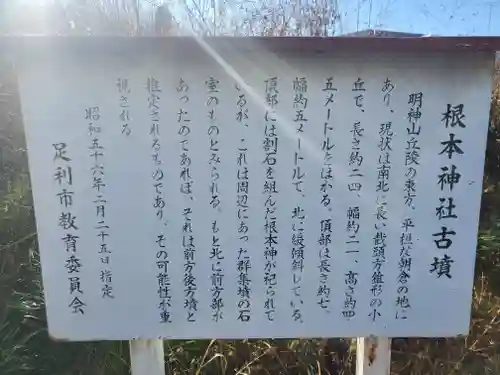 根本神社古墳
明神山丘陵の東方、平坦な朝倉の地に
あり、現状は南北に長い截頭方錐形の小
丘で、長さ約二四、幅約二一、高さ約四・
五メートルとはかる。頂部は長さ約七、
幅約五メートルで、北に緩傾斜している。
頂部には割石を組んだ根本神が祀られて
いるが、これは周辺にあった群集墳の石
室のものとみられる。もと北に前方部が
あったのであれば、それは前方後方墳と
推定されるものであり、その可能性が重
視される
昭和五十六年二月二十五日指定
足利市教育委員会